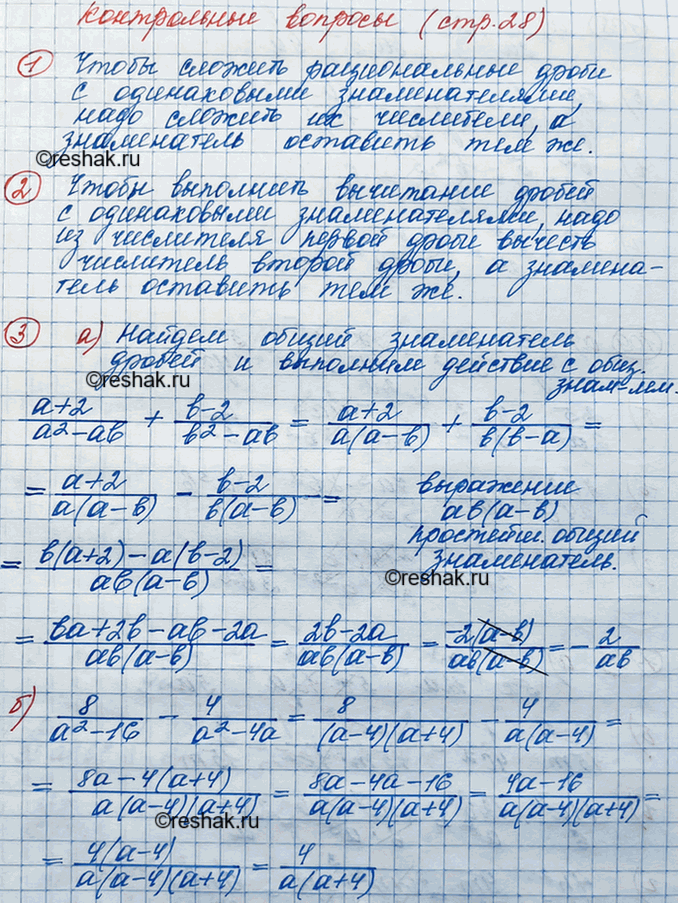 Контрольные вопросы (стр.28)
① Чтобы сложить рациональные дроби
с одинаковыми знаменателями,
надо сложить их числители, а
знаменатель оставить тем же.
©reshak.ru
② Чтобы выполнить вычитание дробей
с одинаковыми знаменателями, надо
из числителя первой дроби вычесть
числитель второй дроби, а знамена-
тель оставить тем же.
③ а) Найдем общий знаменатель
дробей и выполним действие с общ.
знам-лем.
©reshak.ru
(a+2)/(a²-ab) + (b-2)/(b²-ab) = (a+2)/(a(a-b)) + (b-2)/(b(b-a)) =
= (a+2)/(a(a-b)) - (b-2)/(b(a-b)) =
выражение
ab(a-b)
простейш. общий
знаменатель.
©reshak.ru
= (b(a+2)-a(b-2))/(ab(a-b)) =
= (ba+2b-ab-2a)/(ab(a-b)) = (2b-2a)/(ab(a-b)) = (-2(a-b))/(ab(a-b)) = -2/(ab)
б) 8/(a²-16) - 4/(a²-4a) = 8/((a-4)(a+4)) - 4/(a(a-4)) =
= (8a-4(a+4))/(a(a-4)(a+4)) = (8a-4a-16)/(a(a-4)(a+4)) = (4a-16)/(a(a-4)(a+4)) =
©reshak.ru
= (4(a-4))/(a(a-4)(a+4)) = 4/(a(a+4))